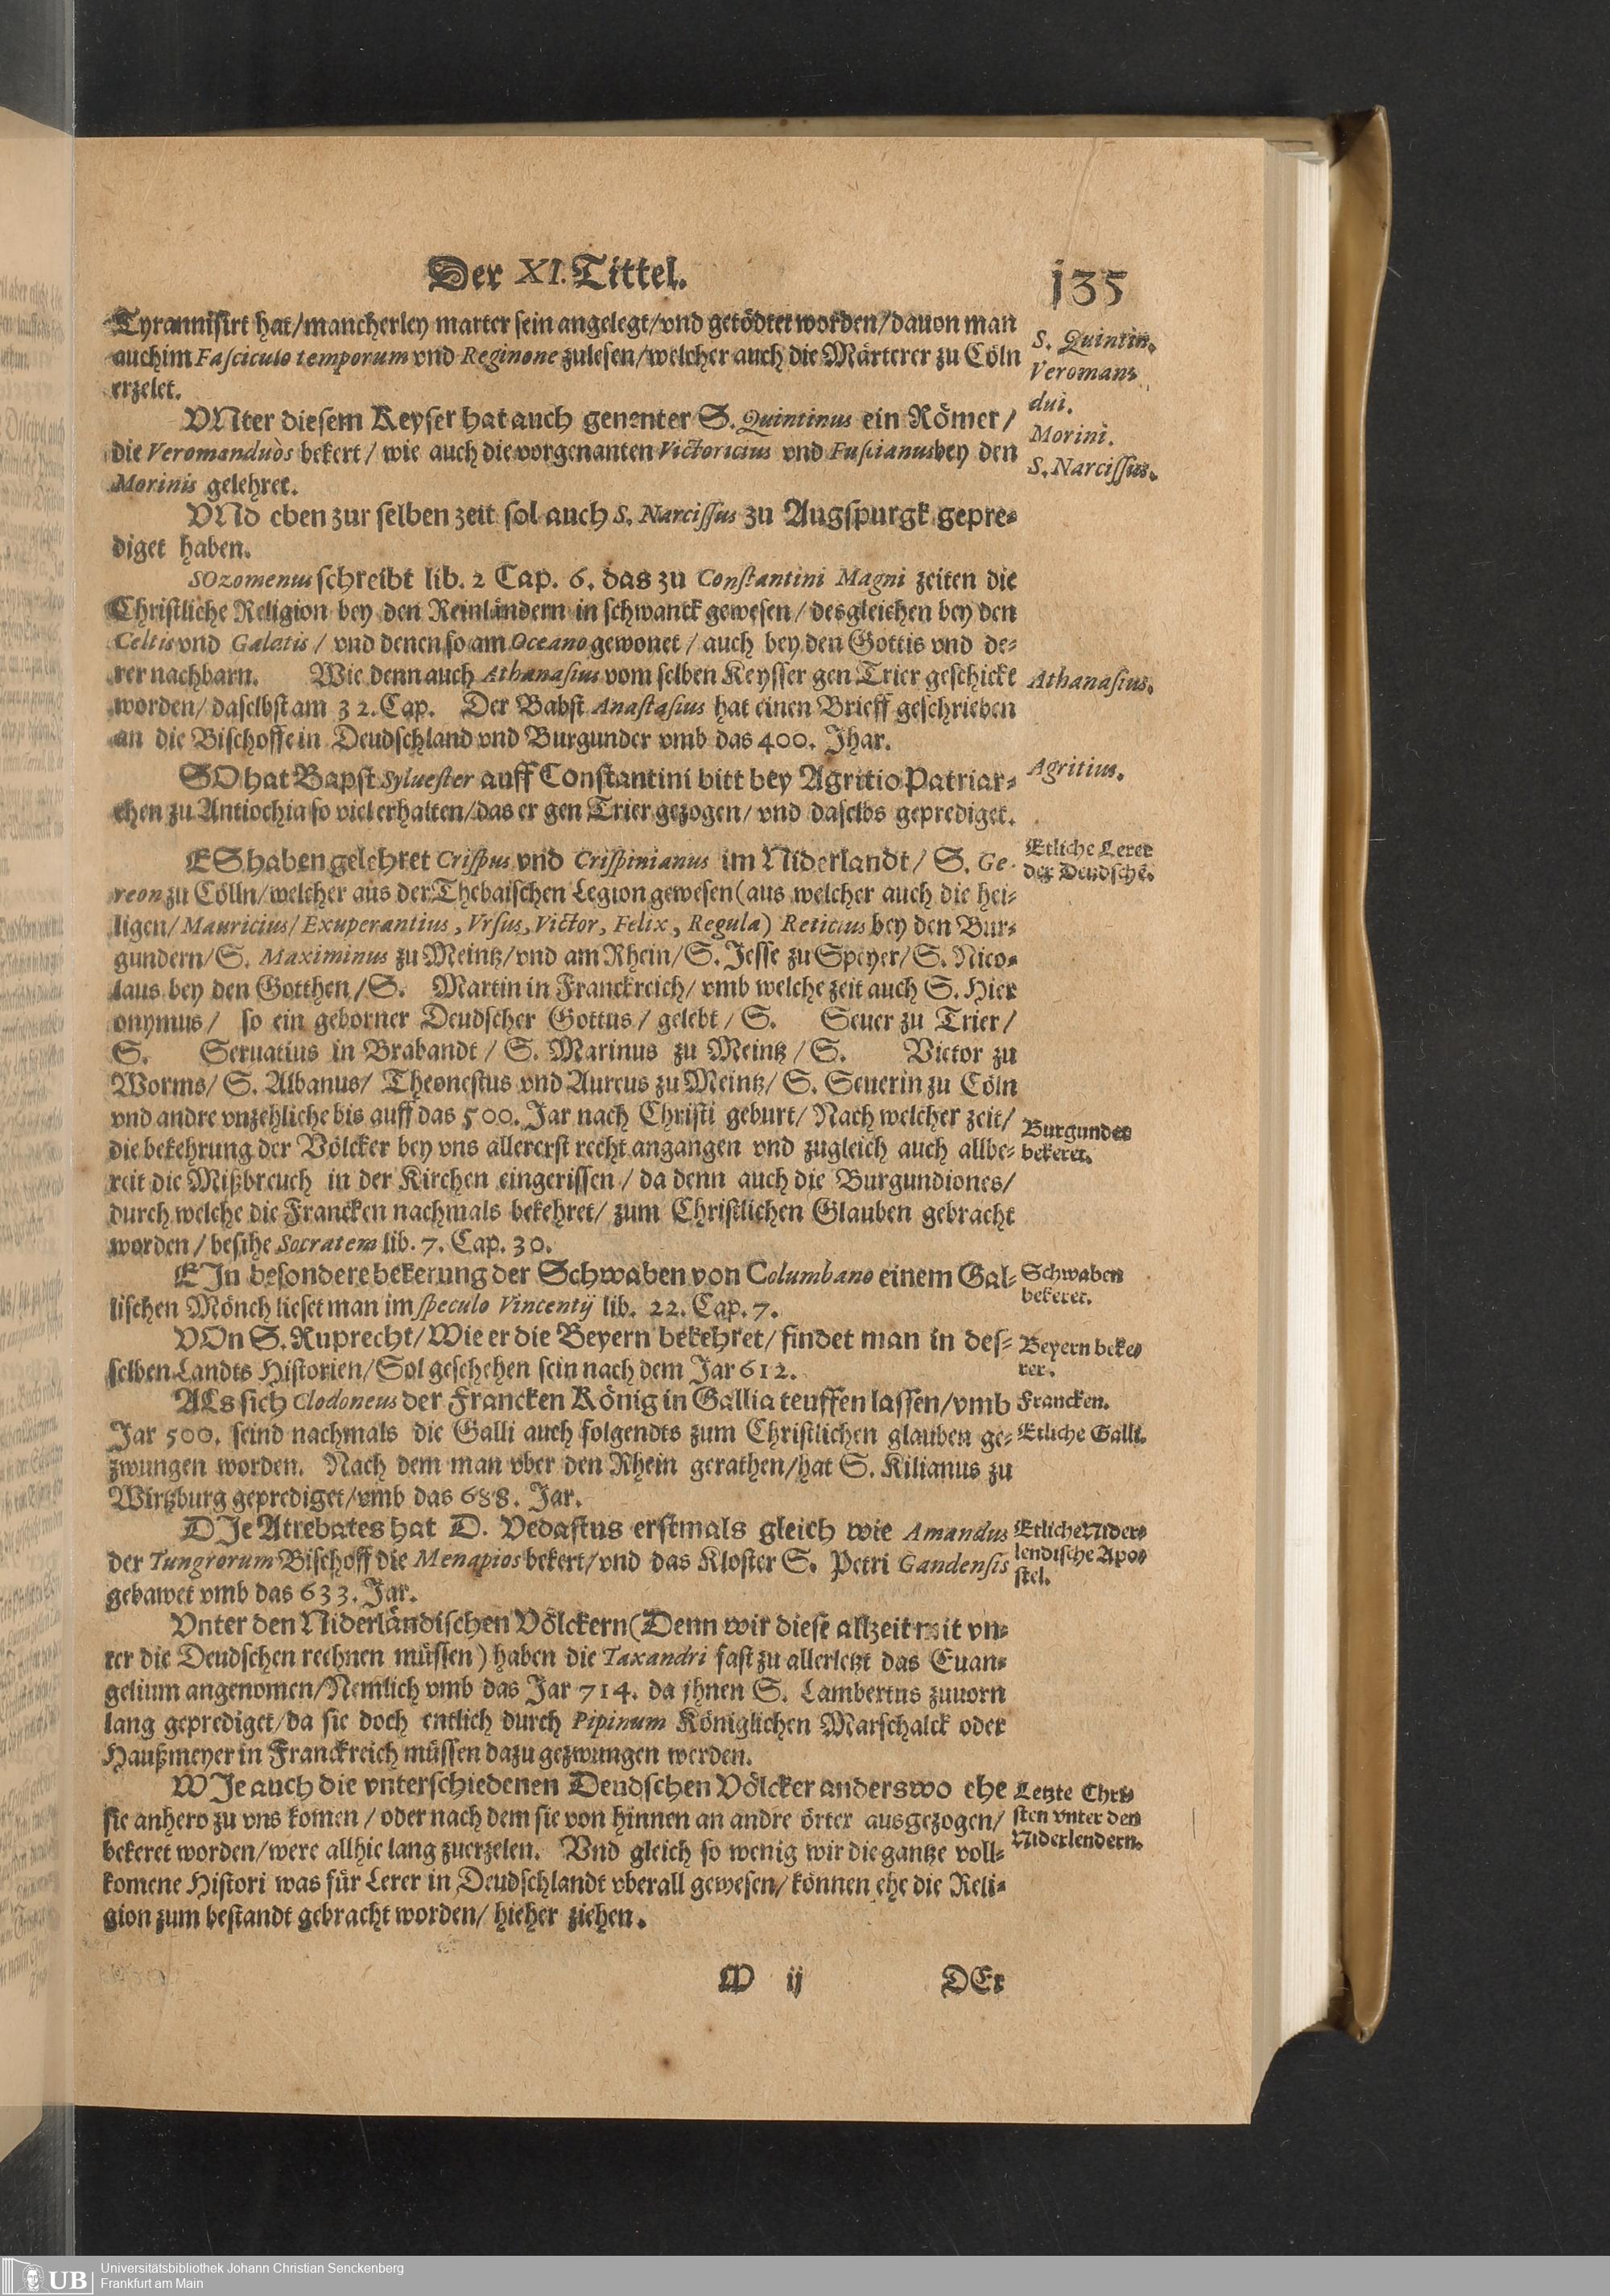 Der XI. Tittel.
135
Tyrannisirt hat/mancherley marter sein angelegt/vnd getödtet worden/dauon man
auch im Fasciculo temporum vnd Reginone zulesen/welcher auch die Märterer zu Cöln
erzelet.
VNter diesem Keyser hat auch genenter S. Quintinus ein Römer/
die Veromanduòs bekert/ wie auch die vorgenanten Victoricius vnd Fuscianus bey den
Morinis gelehret.
S. Quintin.
Veroman-
dui.
Morini.
S. Narcissus.
VNd eben zur selben zeit sol auch S. Narcissus zu Augspurgk gepre-
diget haben.
SOzomenus schreibt lib. 2 Cap. 6. das zu Constantini Magni zeiten die
Christliche Religion bey den Reinländern in schwanck gewesen/ desgleichen bey den
Celtis vnd Galatis/ vnd denen so am Oceano gewonet/ auch bey den Gottis vnd de-
rer nachbarn. Wie denn auch Athanasius vom selben Keysser gen Trier geschickt
worden/ daselbst am 32. Cap. Der Babst Anastasius hat einen Brieff geschrieben
an die Bischoffe in Deudschland vnd Burgunder vmb das 400. Jhar.
Athanasius.
SO hat Bapst Syluester auff Constantini bitt bey Agritio Patriar-
chen zu Antiochia so viel erhalten/das er gen Trier gezogen/ vnd daselbs geprediget.
Agritius.
ES haben gelehret Crispus vnd Crispinianus im Niderlandt/ S. Ge-
reon zu Cölln/welcher aus der Thebaischen Legion gewesen (aus welcher auch die hei-
ligen/ Mauricius/ Exuperantius, Vrsus, Victor, Felix, Regula) Reticius bey den Bur-
gundern/ S. Maximinus zu Meintz/vnd am Rhein/ S. Jesse zu Speyer/ S. Nico-
laus bey den Gotthen/ S. Martin in Franckreich/ vmb welche zeit auch S. Hier
onymus/ so ein geborner Deudscher Gottus/ gelebt/ S. Seuer zu Trier/
S. Seruatius in Brabandt/ S. Marinus zu Meintz/ S. Victor zu
Worms/ S. Albanus/ Theonestus vnd Aureus zu Meintz/ S. Seuerin zu Cöln
vnd andre vnzehliche bis auff das 500. Jar nach Christi geburt/ Nach welcher zeit/
die bekehrung der Völcker bey vns allererst recht angangen vnd zugleich auch allbe-
reit die Mißbreuch in der Kirchen eingerissen/ da denn auch die Burgundiones/
durch welche die Francken nachmals bekehret/ zum Christlichen Glauben gebracht
worden/ besihe Socratem lib. 7. Cap. 30.
Etliche Lerer
der Deudschē.
Burgunder
bekeret.
EJn besondere bekerung der Schwaben von Columbano einem Gal-
lischen Mönch lieset man im speculo Vincentij lib. 22. Cap. 7.
Schwaben
bekeret.
VOn S. Ruprecht/ Wie er die Beyern bekehret/ findet man in des-
selben Landts Historien/ Sol geschehen sein nach dem Jar 612.
Beyern beke-
ret.
ALs sich Clodoneus der Francken König in Gallia teuffen lassen/vmb
Jar 500. seind nachmals die Galli auch folgendts zum Christlichen glauben ge-
zwungen worden. Nach dem man vber den Rhein gerathen/hat S. Kilianus zu
Wirtzburg geprediget/vmb das 688. Jar.
Francken.
Etliche Galli.
DJe Atrebates hat D. Vedastus erstmals gleich wie Amandus
der Tungrorum Bischoff die Menapios bekert/vnd das Kloster S. Petri Gandensis
gebawet vmb das 633. Jar.
Etliche Nider-
lendische Apo-
stel.
Vnter den Niderländischen Völckern (Denn wir diese allzeit mit vn-
ter die Deudschen rechnen müssen) haben die Taxandri fast zu allerletzt das Euan-
gelium angenomen/Nemlich vmb das Jar 714. da jhnen S. Lambertus zuuorn
lang geprediget/da sie doch entlich durch Pipinum Königlichen Marschalck oder
Haußmeyer in Franckreich müssen dazu gezwungen werden.
WJe auch die vnterschiedenen Deudschen Völcker anderswo ehe
sie anhero zu vns komen/ oder nach dem sie von hinnen an andre örter ausgezogen/
bekeret worden/were allhie lang zuerzelen. Vnd gleich so wenig wir die gantze voll-
komene Histori was für Lerer in Deudschlandt vberall gewesen/ können ehe die Reli-
gion zum bestandt gebracht worden/ hieher ziehen.
Letzte Chri-
sten vnter den
Niderlendern.
M ij
DEr
UB
Universitätsbibliothek Johann Christian Senckenberg
Frankfurt am Main